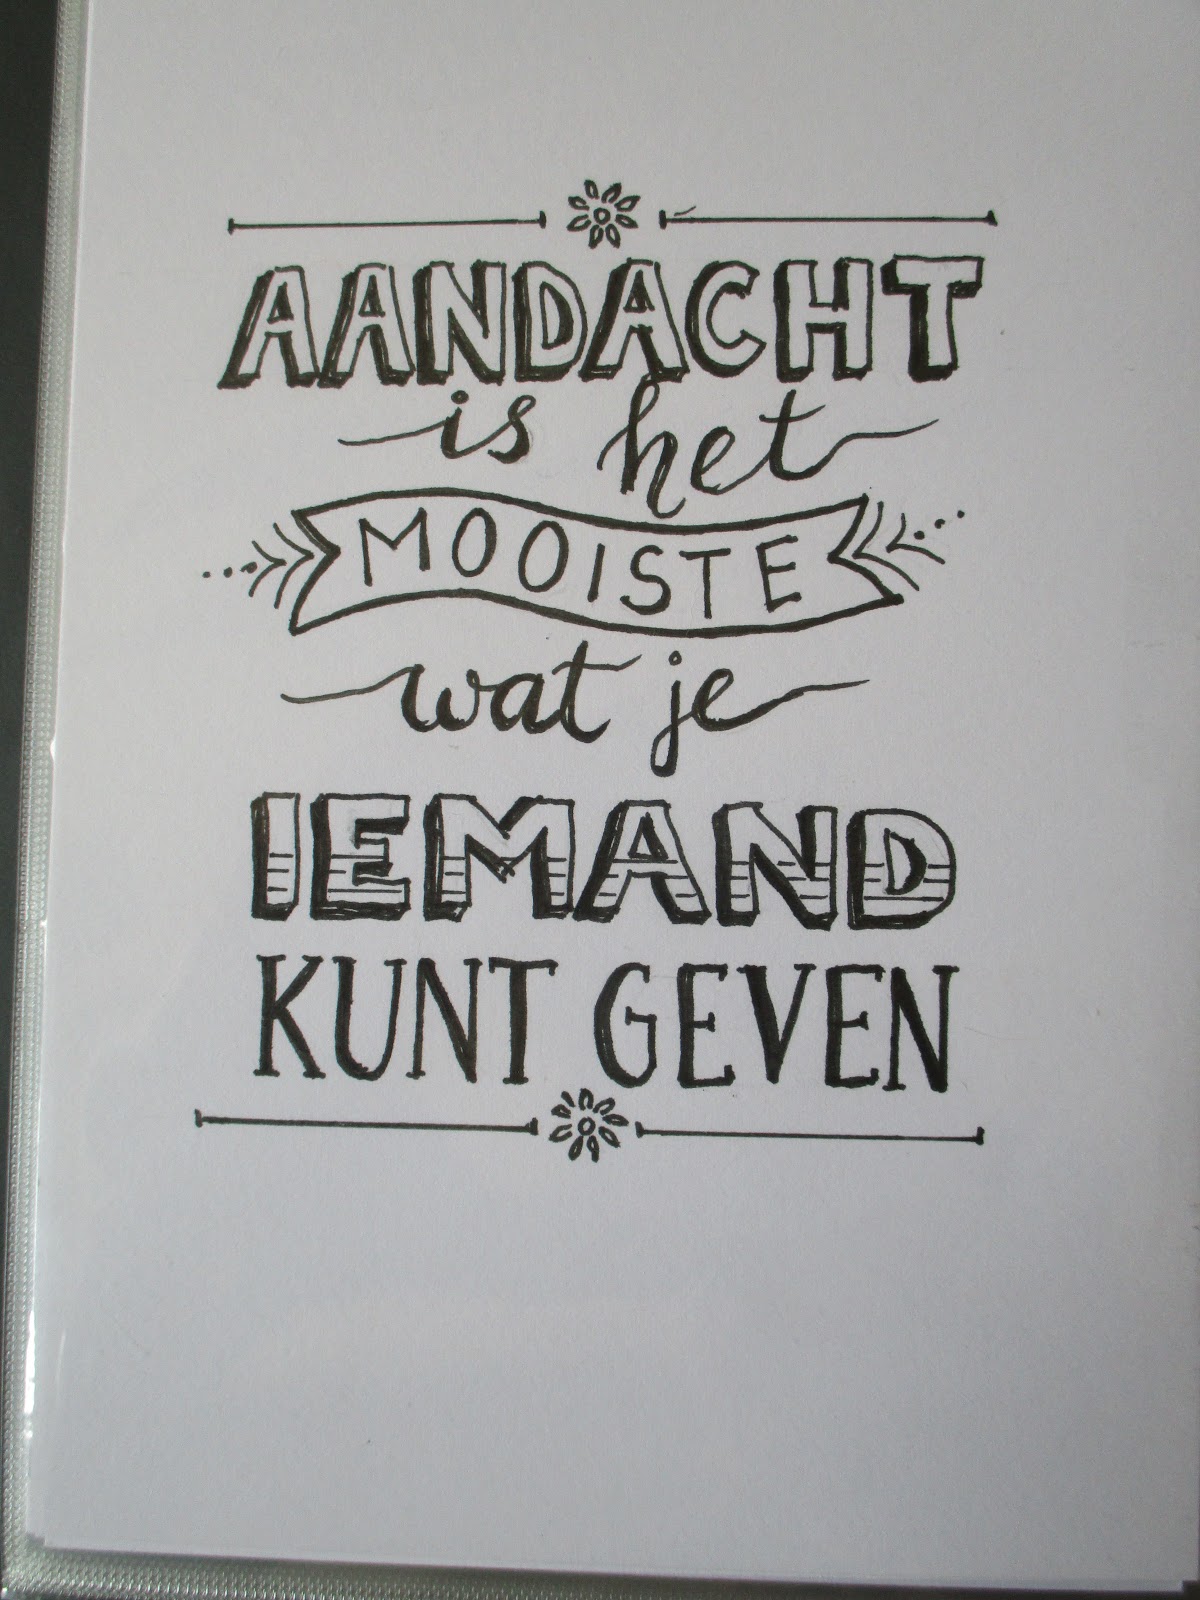 AANDACHT
is het
MOOISTE
wat je
IEMAND
KUNT GEVEN